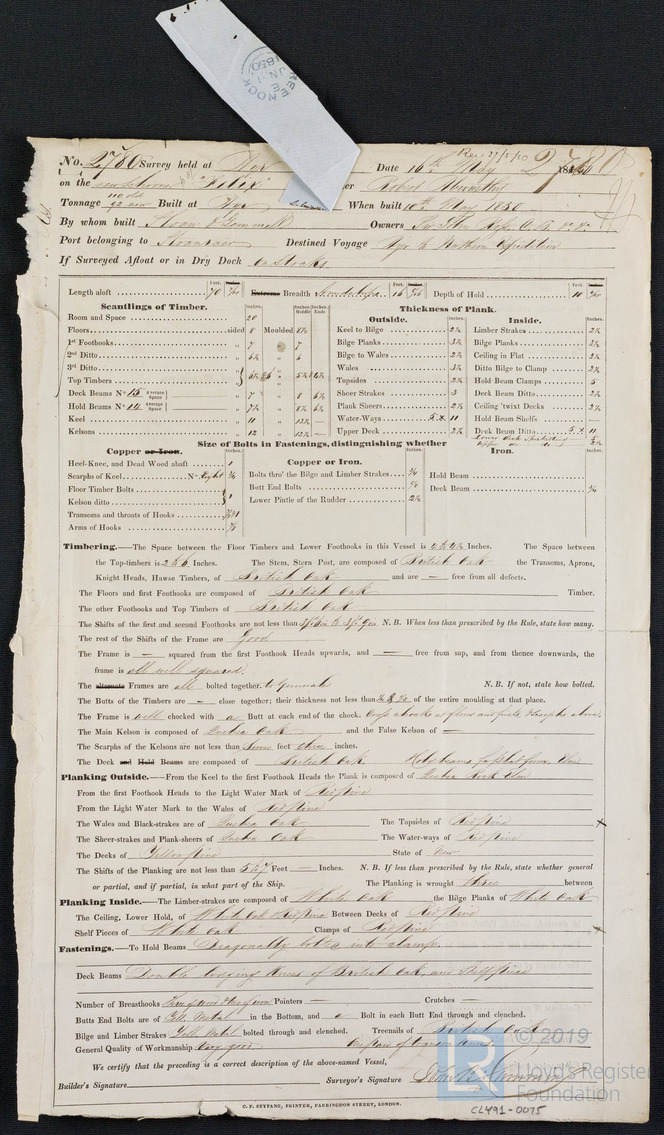 GREENOCK
JUN 1
1850
Rec 27/5/50
No. 2780 Survey held at Ayr Date 16th May 1850
2780
on the new schooner "Felix" Master Robert Abernethy
Tonnage 110 old 92 new Built at Ayr When built 10th May 1850
By whom built Sloan & Gemmell Owners Sir John Ross C.B.
Port belonging to Stranraer Destined Voyage Ayr to Northern Expedition
If Surveyed Afloat or in Dry Dock On Stocks
Length aloft 70 Extreme Breadth 16 Depth of Hold 10
Feet. Inches.
Scantlings of Timber.
Room and Space 20
Floors sided 8 Moulded 8½
1st Foothooks 7 7
2nd Ditto 6½ 6
3rd Ditto
Top Timbers
Deck Beams No 15 Average Space 7 8 6½
Hold Beams No 14 Average Space 7½ 8½ 6½
Keel 11 13½ —
Kelsons 12 13½ —
Inches. Middle Inches. Ends
Thickness of Plank.
Outside.
Keel to Bilge 2½
Bilge Planks 3½
Bilge to Wales 2½
Wales 3½
Topsides 2½
Sheer Strakes 3
Plank Sheers 2½
Water-Ways 5 x 11
Upper Deck 2½
Inside.
Limber Strakes 2½
Bilge Planks 3½
Ceiling in Flat 2½
Ditto Bilge to Clamp 2½
Hold Beam Clamps 5
Deck Beam Ditto 2½
Ceiling 'twixt Decks 2½
Hold Beam Shelfs
Deck Beam Ditto 5 x 11
Size of Bolts in Fastenings, distinguishing whether
Copper or Iron.
Heel-Knee, and Dead Wood abaft 1
Scarphs of Keel No Eight ¾
Floor Timber Bolts
Kelson ditto 1
Transoms and throats of Hooks
Arms of Hooks ⅞
Copper or Iron.
Bolts thro' the Bilge and Limber Strakes ¾
Butt End Bolts ⅝
Lower Pintle of the Rudder 2½
Iron.
Hold Beam
Deck Beam ¾
Timbering.—The Space between the Floor Timbers and Lower Foothooks in this Vessel is Inches. The Space between
the Top-timbers is 2 & 6 Inches. The Stem, Stern Post, are composed of British Oak the Transoms, Aprons,
Knight Heads, Hawse Timbers, of British Oak and are — free from all defects.
The Floors and first Foothooks are composed of British Oak Timber.
The other Foothooks and Top Timbers of British Oak
The Shifts of the first and second Foothooks are not less than N.B. When less than prescribed by the Rule, state how many.
The rest of the Shifts of the Frame are Good
The Frame is — squared from the first Foothook Heads upwards, and — free from sap, and from thence downwards, the
frame is all well squared.
The alternate Frames are all bolted together. to Gunwale N. B. If not, state how bolted.
The Butts of the Timbers are — close together; their thickness not less than of the entire moulding at that place.
The Frame is well chocked with a Butt at each end of the chock.
The Main Kelson is composed of Quebec Oak and the False Kelson of —
The Scarphs of the Kelsons are not less than feet three inches.
The Deck and Hold Beams are composed of British Oak Hold beams
Planking Outside.—From the Keel to the first Foothook Heads the Plank is composed of Quebec Rock Elm
From the first Foothook Heads to the Light Water Mark of Red pine
From the Light Water Mark to the Wales of Red pine
The Wales and Black-strakes are of Quebec Oak The Topsides of Red pine
The Sheer-strakes and Plank-sheers of Quebec Oak The Water-ways of Red pine
The Decks of Yellow pine State of New
The Shifts of the Planking are not less than 5 & 7 Feet — Inches. N. B. If less than prescribed by the Rule, state whether general
or partial, and if partial, in what part of the Ship. The Planking is wrought three between
Planking Inside.—The Limber-strakes are composed of White Oak the Bilge Planks of White Oak
The Ceiling, Lower Hold, of White Oak & Red pine Between Decks of Red pine
Shelf Pieces of White Oak Clamps of Red pine
Fastenings.—To Hold Beams Diagonally bolted into clamp.
Deck Beams Double lodging Knees of British Oak, and
Number of Breasthooks Pointers — Crutches —
Butts End Bolts are of Yell. Metal in the Bottom, and a Bolt in each Butt End through and clenched.
Bilge and Limber Strakes Yell. Metal bolted through and clenched. Treenails of British Oak
General Quality of Workmanship Very good
We certify that the preceding is a correct description of the above-named Vessel,
Builder's Signature Surveyor's Signature
C. F. SEYFANG, PRINTER, FARRINGDON STREET, LONDON.
CL491-0075
© 2019
Lloyd's Register
Foundation